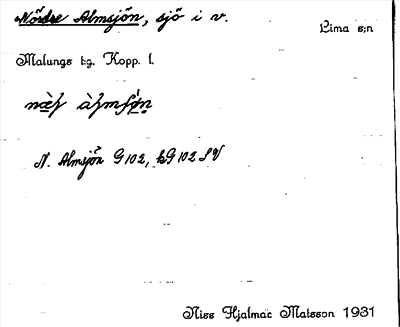 Nördre Almsjön, sjö i v.
Lima s:n
Malungs tg. Kopp. l.
N. Almsjön G 102, bG 102 SV
Niss Hjalmar Matsson 1931